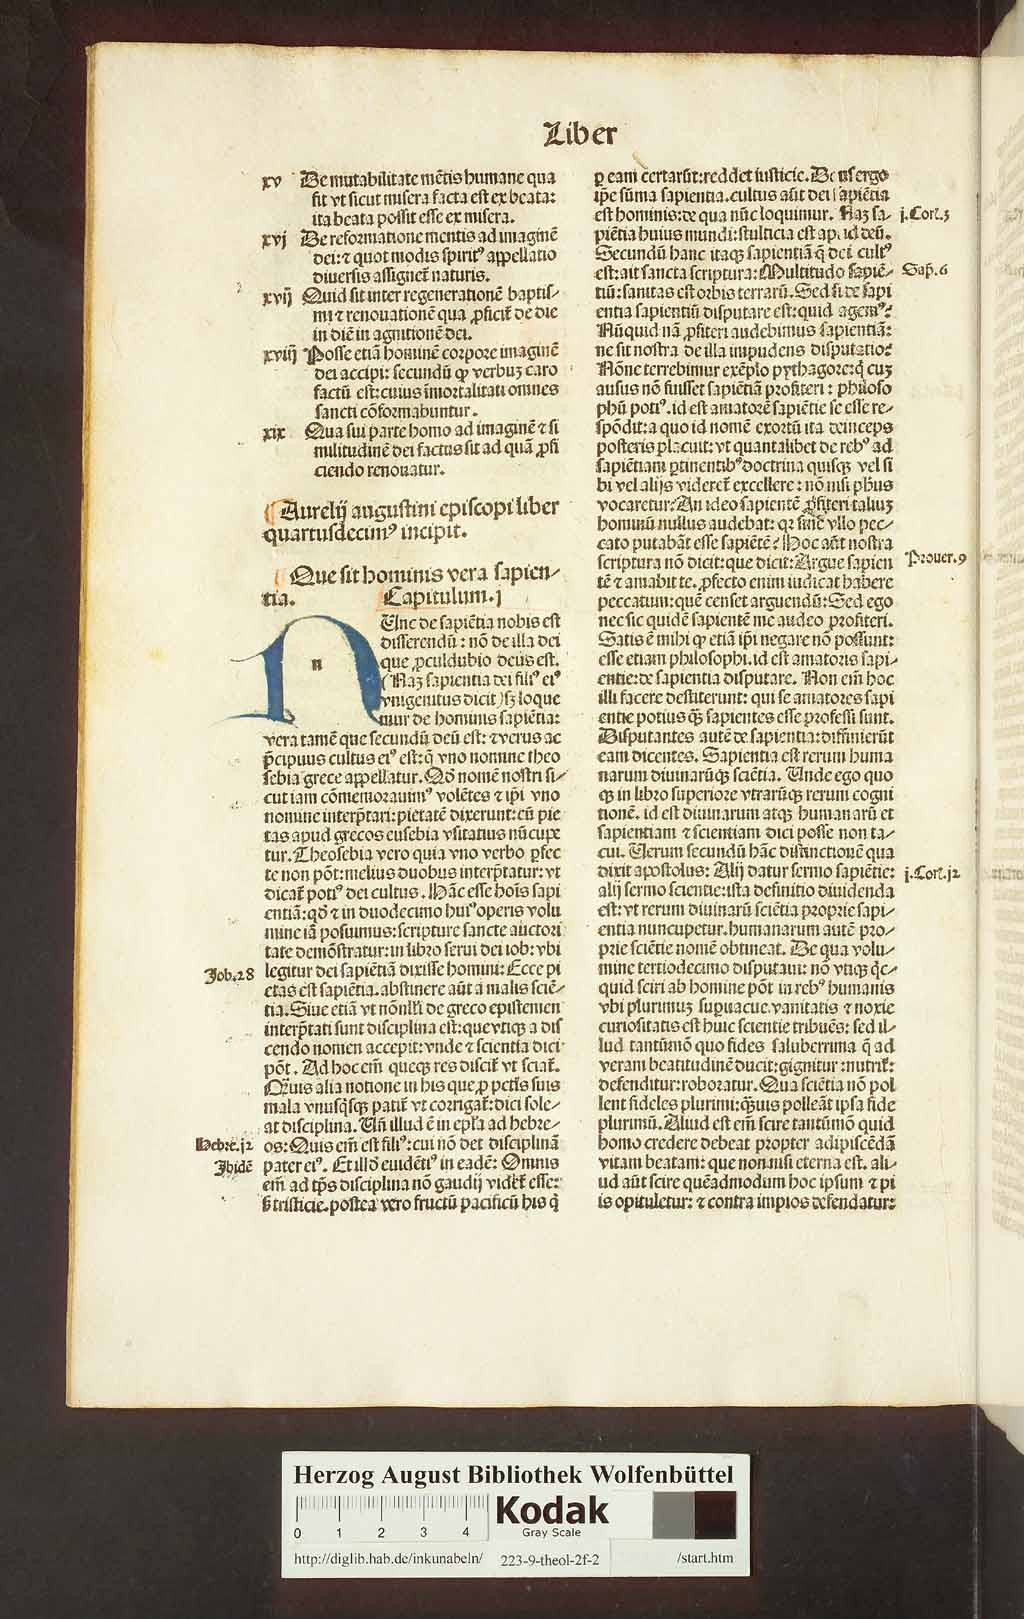 Liber
xv De mutabilitate mētis humane qua
fit vt sicut misera facta est ex beata:
ita beata possit esse ex misera.
xvj De reformatione mentis ad imaginē
dei: ⁊ quot modis spiritꝰ appellatio
diuersis assignet̄ naturis.
xvij Quid sit inter regenerationē baptis-
mi ⁊ renouationē qua ꝓficit̄ de die
in diē in agnitionē dei.
xviij Posse etiā hominē corpore imaginē
dei accipi: secundū ꝙ verbuꝫ caro
factū est: cuius īmortalitati omnes
sancti cōformabuntur.
xix Qua sui parte homo ad imaginē ⁊ si
militudinē dei factus sit ad quā ꝓfi
ciendo renouatur.
Aurelij augustini episcopi liber
quartusdecimꝰ incipit.
Que sit hominis vera sapien-
tia. Capitulum.j
n
Unc de sapiētia nobis est
disserendū: nō de illa dei
que ꝓculdubio deus est.
(Naꝫ sapientia dei filiꝰ eiꝰ
vnigenitus dicit̄) sꝫ loque
mur de hominis sapiētia:
vera tamē que secundū deū est: ⁊ verus ac
p̄cipuus cultus eiꝰ est: q̄ vno nomine theo
sebia grece appellatur. Qd̄ nomē nostri si-
cut iam cōmemorauimꝰ volētes ⁊ ip̄i vno
nomine interp̄tari: pietatē dixerunt: cū pie
tas apud grecos eusebia vsitatius nūcupe
tur. Theosebia vero quia vno verbo ꝑfec
te non pōt: melius duobus interp̄tatur: vt
dicat̄ potiꝰ dei cultus. Hāc esse hoīs sapi
entiā: qd̄ ⁊ in duodecimo huiꝰ operis volu
mine iā posuimus: scripture sancte auctori
tate demōstratur: in libro serui dei iob: vbi
Job.28 legitur dei sapiētiā dixisse homini: Ecce pi
etas est sapiētia. abstinere aūt a malis sciē-
tia. Siue etiā vt nōnlli de greco epistemen
interp̄tati sunt disciplina est: que vtiqꝫ a dis
cendo nomen accepit: vnde ⁊ scientia dici
pōt. Ad hoc em̄ queqꝫ res discit̄ vt sciat̄.
Q̄uis alia notione in his que ꝓ pctīs suis
mala vnusq̄sqꝫ patit̄ vt corrigat̄: dici sole-
at disciplina. Uñ illud ē in epl̄a ad hebre-
Hebre.12 os: Quis em̄ est filiꝰ: cui nō det disciplinā
Ibidē pater eiꝰ. Et illd̄ euidētiꝰ in eadē: Omnis
em̄ ad tp̄s disciplina nō gaudij videt̄ esse:
s̄ tristicie. postea vero fructū pacificū his q̄
ꝑ eam certarūt: reddet iusticie. Deus ergo
ip̄e sūma sapientia. cultus aūt dei sapiētia
est hominis: de qua nūc loquimur. Naꝫ sa- j.Cori.3
piētia huius mundi: stulticia est apud deū.
Secundū hanc itaqꝫ sapientiā q̄ dei cultꝰ
est: ait sancta scriptura: Multitudo sapiē- Sap̄.6
tiū: sanitas est orbis terrarū. Sed si de sapi
entia sapientiū disputare est: quid agemꝰ?
Nūquid nā ꝓfiteri audebimus sapientiā:
ne sit nostra de illa impudens disputatio?
Nōne terrebimur exēplo pythagore: q̄ cuꝫ
ausus nō fuisset sapiētiā profiteri: philoso
phū potiꝰ. id est amatorē sapiētie se esse re-
spōdit: a quo id nomē exortū ita deinceps
posteris placuit: vt quantalibet de rebꝰ ad
sapiētiam ꝑtinentibꝰ doctrina quisqꝫ vel si
bi vel alijs videret̄ excellere: nō nisi ph̄us
vocaretur? An ideo sapientē ꝓfiteri taliuꝫ
hominū nullus audebat: qꝛ sine vllo pec-
cato putabāt esse sapiētē? Hoc aūt nostra
scriptura nō dicit: que dicit: Argue sapien Prouer.9
tē ⁊ amabit te. ꝓfecto enim iudicat habere
peccatum: quē censet arguendū: Sed ego
nec sic quidē sapientē me audeo ꝓfiteri.
Satis ē mihi ꝙ etiā ip̄i negare nō possunt:
esse etiam philosophi. id est amatoris sapi-
entie: de sapientia disputare. Non em̄ hoc
illi facere destiterunt: qui se amatores sapi
entie potius q̄ꝫ sapientes esse professi sunt.
Disputantes autē de sapientia: diffinierūt
eam dicentes. Sapientia est rerum huma
narum diuinarūqꝫ sciētia. Unde ego quo
qꝫ in libro superiore vtrarūqꝫ rerum cogni
tionē. id est diuinarum atqꝫ humanarū et
sapientiam ⁊ scientiam dici posse non ta-
cui. Uerum secundū hāc distinctionē qua
dixit apostolus: Alij datur sermo sapiētie: j.Cori.12
alij sermo scientie: ista definitio diuidenda
est: vt rerum diuinarū sciētia proprie sapi-
entia nuncupetur. humanarum autē pro-
prie sciētie nomē obtineat. De qua volu-
mine tertiodecimo disputaui: nō vtiqꝫ q̄c-
quid sciri ab homine pōt in rebꝰ humanis
vbi plurimuꝫ suꝑuacue vanitatis ⁊ noxie
curiositatis est huic scientie tribuēs: sed il-
lud tantūmō quo fides saluberrima q̄ ad
veram beatitudinē ducit: gignitur: nutrit̄:
defenditur: roboratur. Qua sciētia nō pol
lent fideles plurimi: q̄ꝫuis polleāt ipsa fide
plurimū. Aliud est em̄ scire tantūmō quid
homo credere debeat propter adipiscēdā
vitam beatam: que non nisi eterna est. ali-
ud aūt scire quēadmodum hoc ipsum ⁊ pi
is opituletur: ⁊ contra impios defendatur:
Herzog August Bibliothek Wolfenbüttel
0 1 2 3 4
Kodak
Gray Scale
http://diglib.hab.de/inkunabeln/ 223-9-theol-2f-2 /start.htm